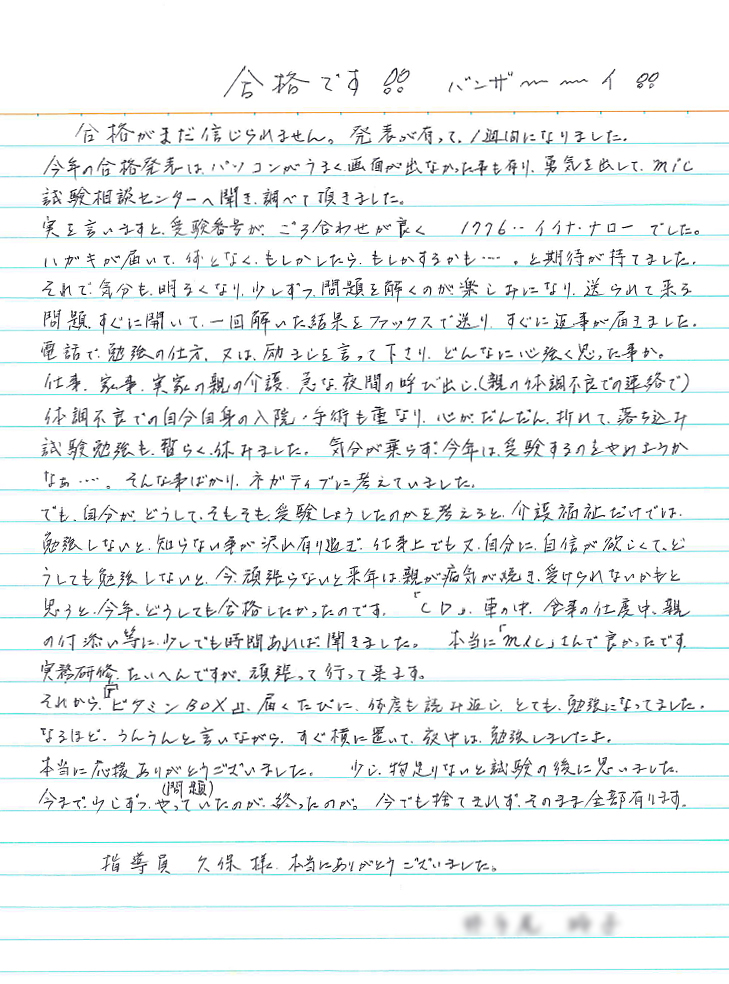 合格です!! バンザーーイ!!
合格がまだ信じられません。発表が有って、1週間になりました。
今年の合格発表は、パソコンがうまく画面が出なかった事も有り、勇気を出して、mic
試験相談センターへ聞き、調べて頂きました。
実を言いますと、受験番号が、ごろ合わせが良く 1776‥イイナ・ナローでした。
ハガキが届いて、何となく、もしかしたら、もしかするかも…。と期待が持てました。
それで、気分も、明るくなり、少しずつ、問題を解くのが楽しみになり、送られて来る
問題、すぐに開いて、一回解いた結果をファックスで送り、すぐに返事が届きました。
電話で、勉強の仕方、又は、励ましを言って下さり、どんなに心強く思った事か。
仕事、家事、実家の親の介護、急な夜間の呼び出し、(親の体調不良での連絡で)
体調不良での自分自身の入院・手術も重なり、心が、だんだん、折れて、落ち込み
試験勉強も、暫らく、休みました。気分が乗らず、今年は、受験するのをやめようか
なぁ…。そんな事ばかり、ネガティブに考えていました。
でも、自分が、どうして、そもそも、受験しようしたのかを考えると、介護福祉だけでは、
勉強しないと、知らない事が沢山有り過ぎ、仕事上でも又、自分に、自信が欲しくて、ど
うしても勉強しないと、今、頑張らないと来年は、親が病気が焼き、受けられないかもと
思うと、今年、どうしても合格したかったのです。「CD」、車の中、食事の仕度中、親
の付添い等に、少しでも時間あれば、聞きました。 本当に「mic」さんで良かったです。
実務研修、たいへんですが、頑張って行って来ます。
それから、『ビタミンBOX』、届くたびに、何度も読み返し、とても、勉強になってました。
なるほど、うんうんと言いながら、すぐ横に置いて、夜中は、勉強しましたよ。
本当に応援ありがとうございました。 少し、物足りないと試験の後に思いました。
今まで、少しずつ、(問題)やっていたのが、終ったのが。今でも捨てきれず、そのまま全部有ります。
指導員 久保様、本当にありがとうございました。